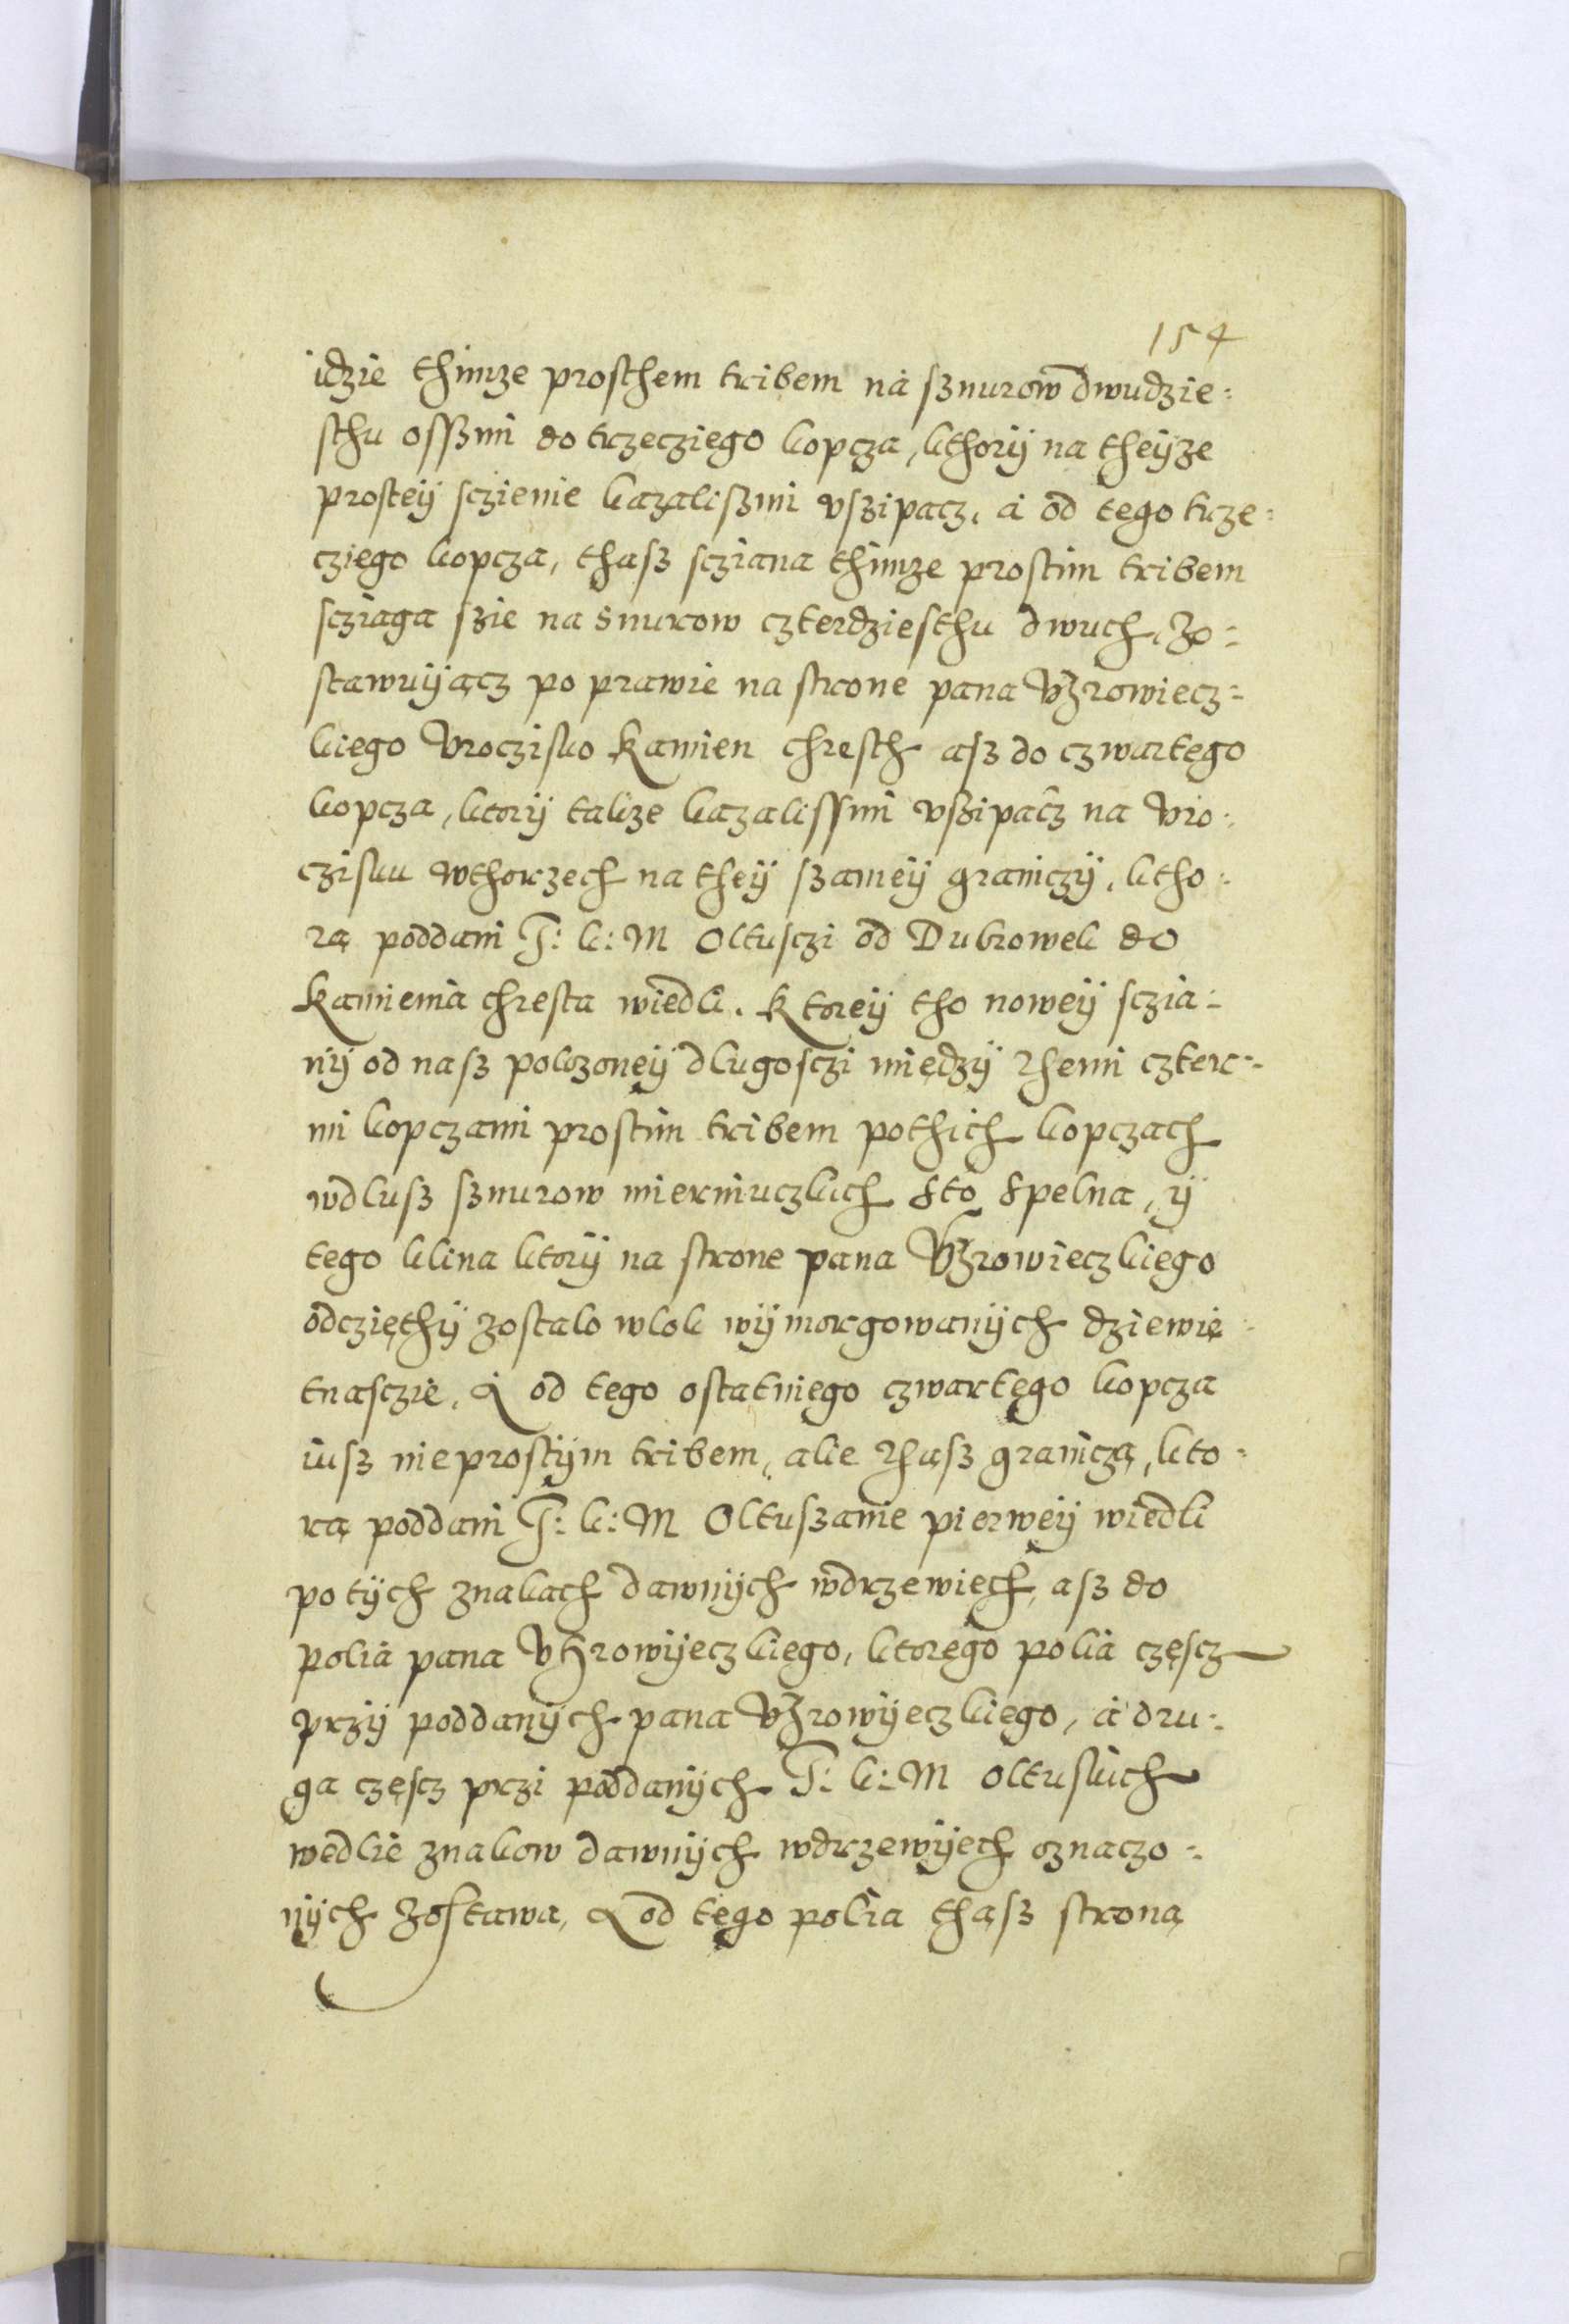 154
idzie thimze prosthem tribem na sznurow dwudzie:
sthu osszmi do trzecziego kopcza, kthorÿ na theÿze
prosteÿ sczienie kazaliszmi vszipacz, a od tego trze:
cziego kopcza, thasz scziana thimze prostim tribem
scziaga szie na snurow czterdziesthu dwuch, zo:
stawuÿącz po prawie na strone pana Vhrowiecz:
kiego Vroczisko Kamien chresth asz do czwartego
kopcza, ktorÿ takze kazalissmi vszipacz na Vro:
czisku wthorzech na theÿ szameÿ graniczÿ, ktho:
rą poddani J: k: M Oltusczi od Dubrowek do
Kamienia chresta wiedli. Ktoreÿ tho noweÿ sczia:
nÿ od nasz polozoneÿ dlugosczi międzÿ themi czter:
mi kopczami prostim tribem pothich kopczach
wdlusz sznurow mierniuczkich sto spelna, ÿ
tego klina ktorÿ na strone pana Vhrowieczkiego
odcziethÿ zostalo wlok wÿmorgowanÿch dziewię
tnasczie, A od tego ostatniego czwartego kopcza
iusz nieprostÿm tribem, alie thąsz granicżą, kto:
rą poddani J: k: M Oltuszanie pierweÿ wiedli
potÿch znakach dawnÿch wdrzewiech, asz do
polia pana Vhrowÿeczkiego, ktorego polia częscz
przÿ poddanÿch pana Vhrowÿeczkiego, a dru:
ga częscz przi poddanÿch J: k: M Oltuskich
wedlie znakow dawnÿch wdrzewÿech oznaczo:
nÿch zostawa, A od tego polia thąsz stroną